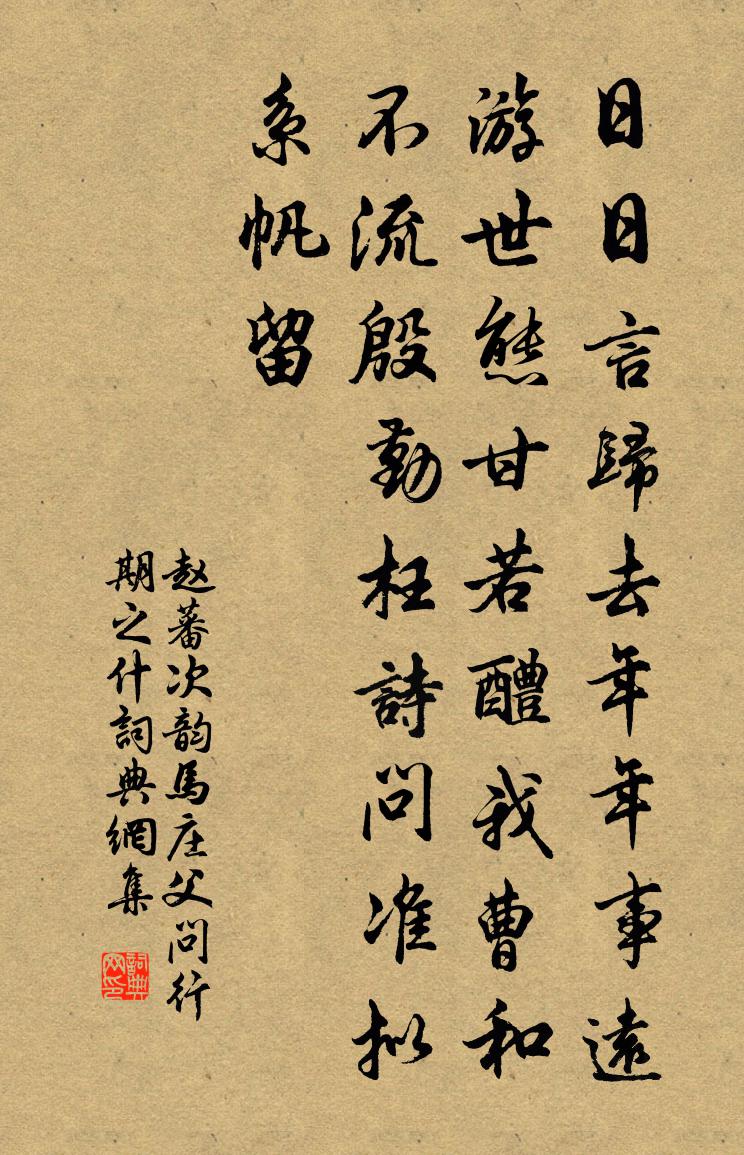 日日言歸去年年事遠
游世態甘若醴我曹和
不流殷勤枉詩問准拟
系帆留
赵蕃次韵馬庄父問行
期之什詞典網集
詞典网印